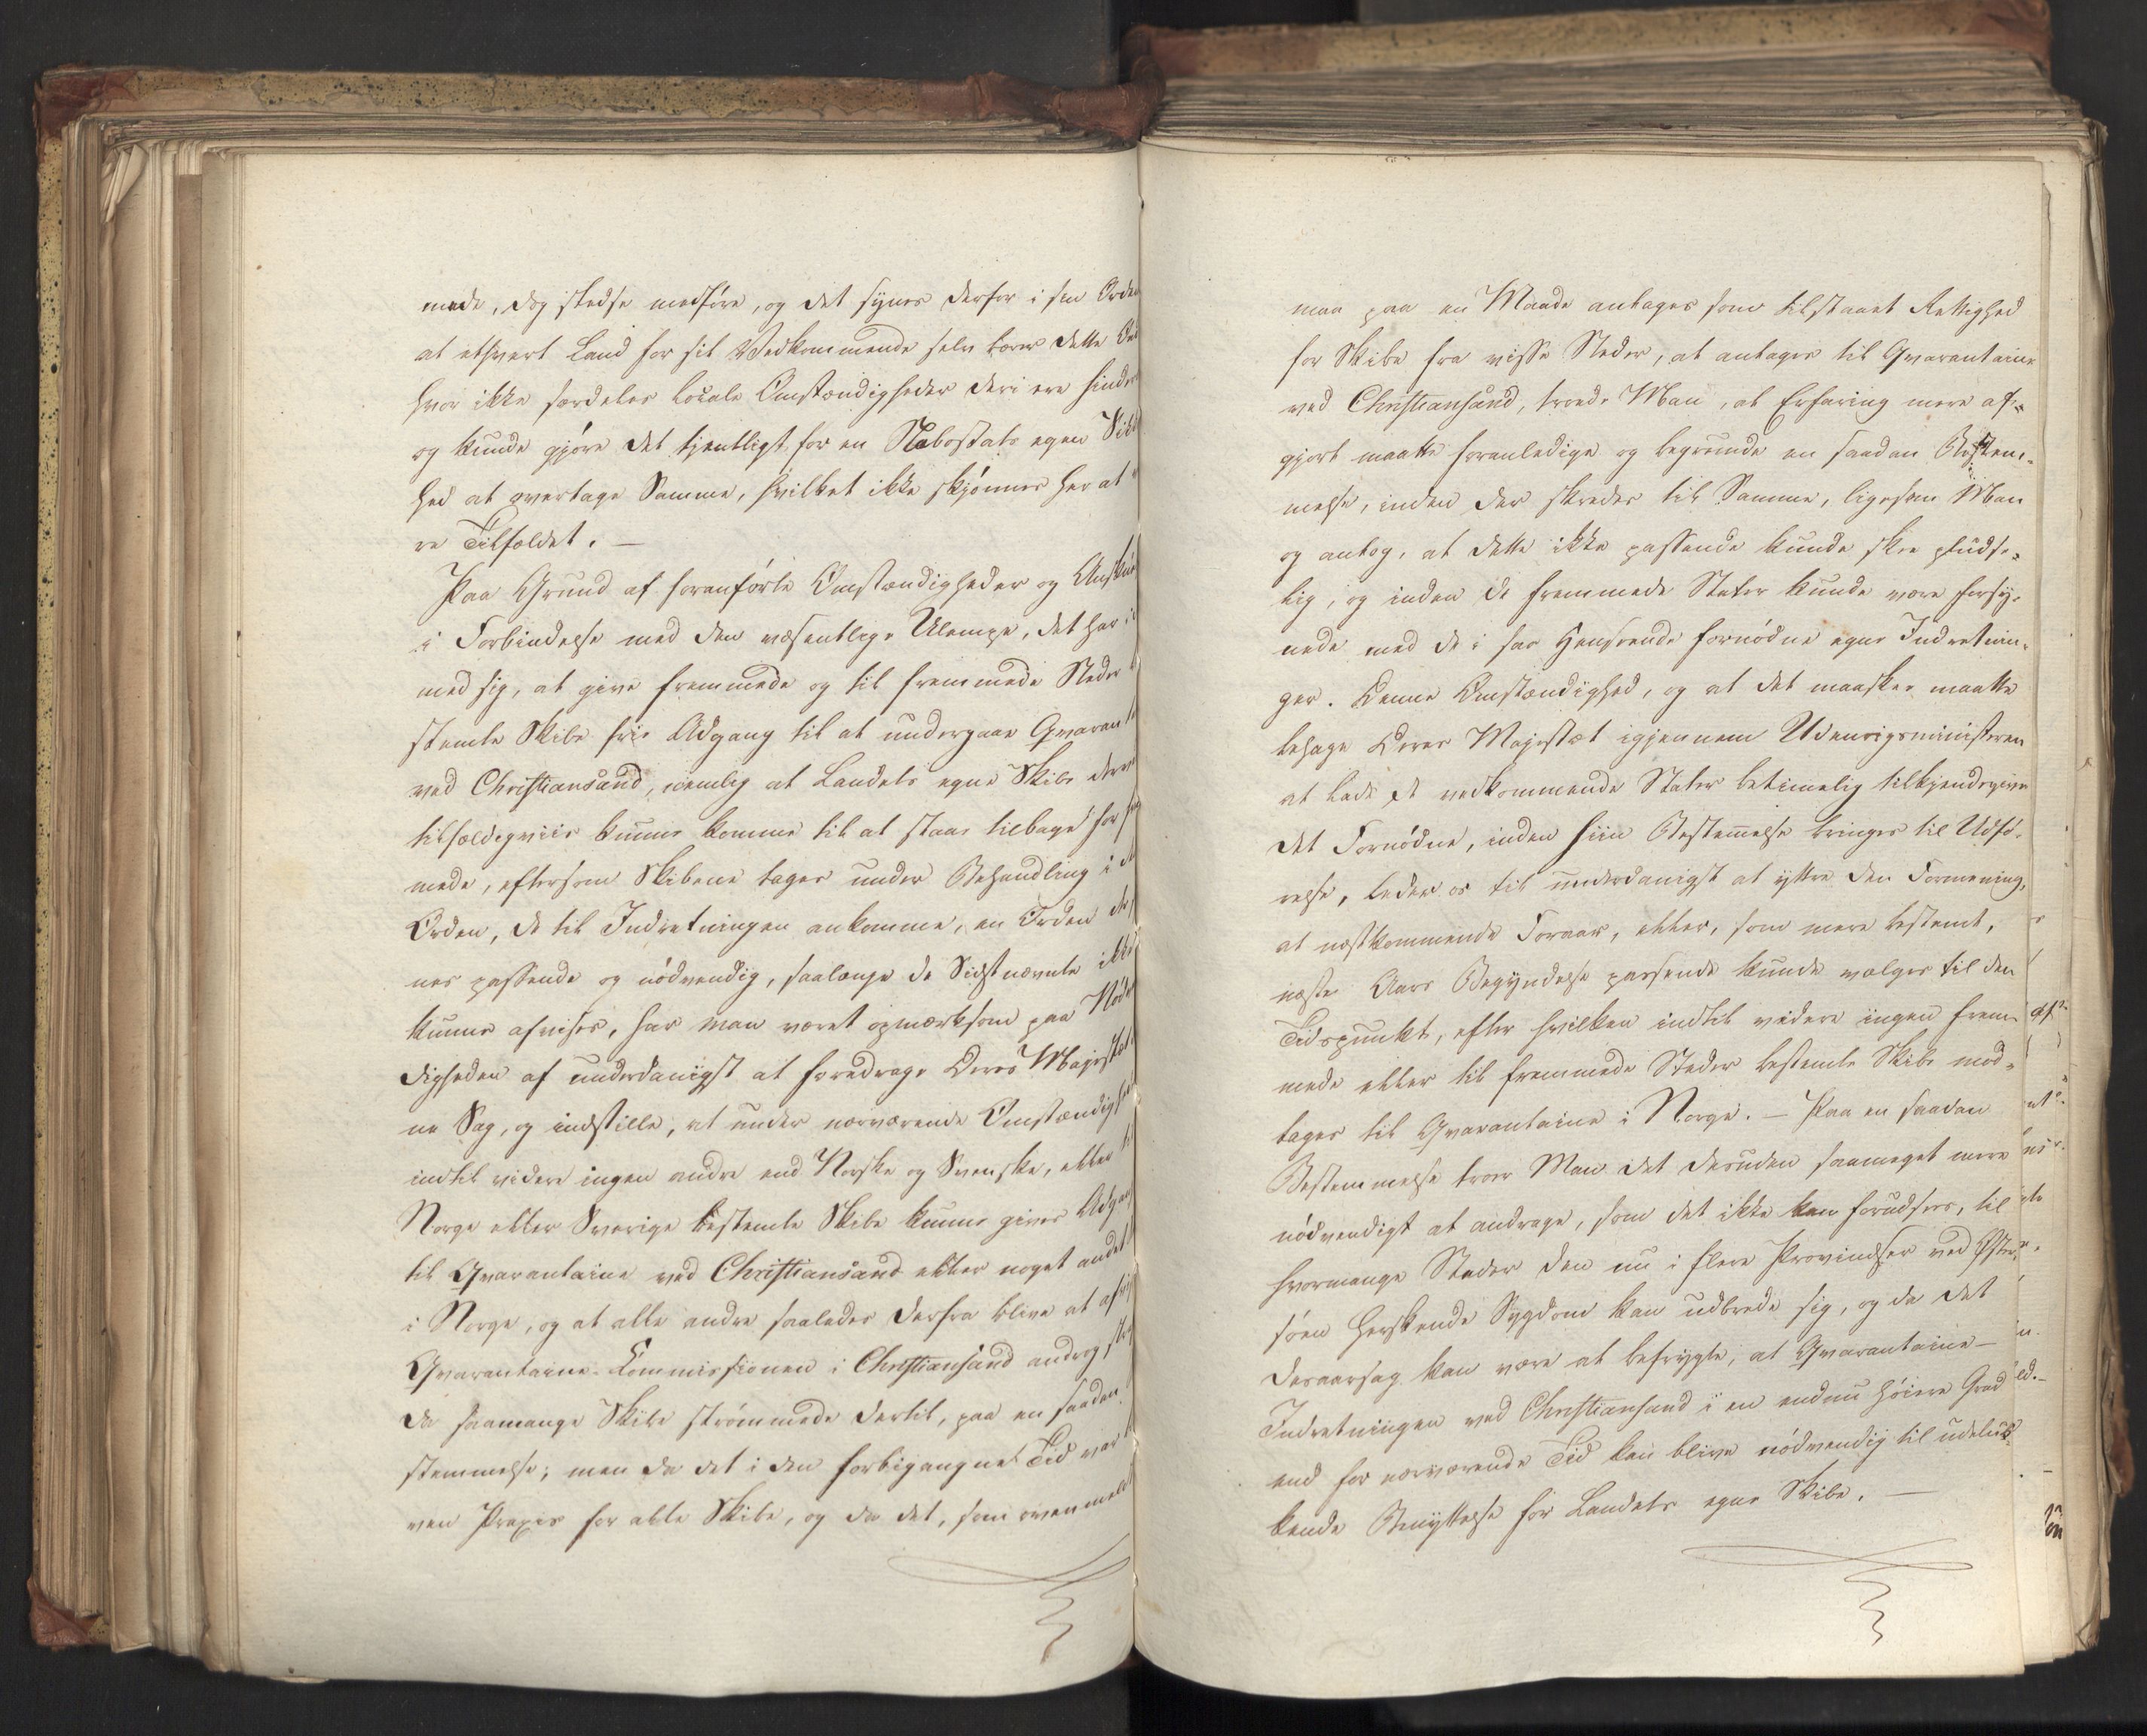 mede, dog stedse medføre, og det synes derfor i sin Orden
at ethvert Land for sit Vedkommende selv bærer dette
hvor ikke særdeles locale Omstændigheder deri ere hinder
og kunde gjøre det tjenligt for en Nabostats egen Sikk
hed at overtage Samme, hvilket ikke skjønnes her at
re Tilfældet. —
Paa Grund af foranførte Omstændigheder og Ansku
i Forbindelse med den væsentlige Ulempe, det har i
med sig, at give fremmede og til fremmede Steder
stemte Skibe frie Adgang til at undergaae Qvaran
ved Christiansand, nemlig at Landets egne Skibe derve
tilfældigviis kunne komme til at staae tilbage for
mede, eftersom Skibene tages under Behandling i
Orden, de til Indretningen ankomme, en Orden der
nes passende og nødvendig, saalænge de Sidstnævnte ikke
kunne afvises, har man været opmærksom paa Nødv
digheden af underdanigst at foredrage Deres Majestæt
ne Sag, og indstille, at under nærværende Omstændighe
indtil videre ingen andre end Norske og Svenske, eller til
Norge eller Sverige bestemte Skibe kunne gives Adgang
til Qvarantaine ved Christiansand eller noget andet
i Norge, og at alle andre saaledes derfra blive at afvi
Qvarantaine-Commissionen i Christiansand androg
da saamange Skibe strømmede dertil, paa en saadan
stemmelse; men da det i den forbigangne Tid var
ven Praxis for alle Skibe, og da det, som ovenmeld
maa paa en Maade antages som tilstaaet Rettighed
for Skibe fra visse Steder, at antages til Qvarantaine
ved Christiansand, troede Man, at Erfaring mere af-
gjort maatte foranledige og begrunde en saadan Bestem-
melse, inden der skredes til Samme, ligesom Man
og antog, at dette ikke passende kunde skee pludse-
lig, og inden de fremmede Stater kunde være forsy-
nede med de i saa Henseende fornødne egne Indretnin-
ger. Denne Omstændighed, og at det maaskee maatte
behage Deres Majestæt igjennem Udenrigsministeren
at lade de vedkommende Stater betimelig tilkjendegive
det Fornødne, inden hiin Bestemmelse bringes til Udfø-
relse, leder os til underdanigst at yttre den Formening,
at næstkommende Foraar, eller, som mere bestemt,
næste Aars Begyndelse passende kunde vælges til den
Tidspunkt, efter hvilken indtil videre ingen frem-
mede eller til fremmede Steder bestemte Skibe mod-
tages til Qvarantaine i Norge. — Paa en saadan
Bestemmelse troer Man det desuden saameget mere
nødvendigt at andrage, som det ikke kan forudsees, til
hvormange Steder den nu i flere Provindser ved Øster-
søen herskende Sygdom kan udbrede sig, og da det
desaarsag kan være at befrygte, at Qvarantaine-
Indretningen ved Christiansand i en endnu høiere Grad
end for nærværende Tid kan blive nødvendig til udeluk-
kende Benyttelse for Landets egne Skibe. —